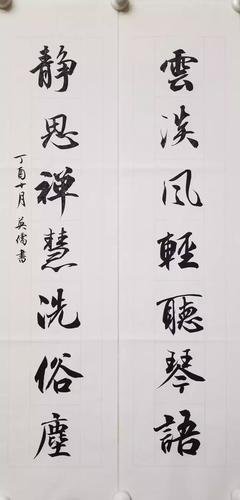 雲淡風輕聽琴語
静思禅慧洗俗塵
丁酉十月英儒書